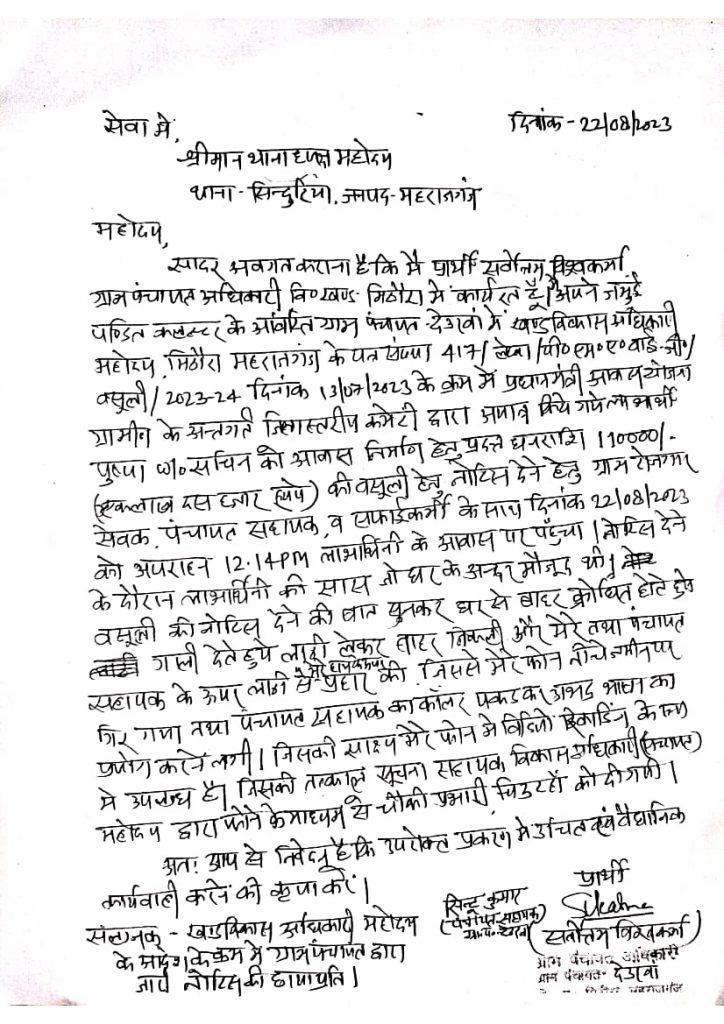 सेवा में,
दिनांक - 22/08/2023
श्रीमान थानाध्यक्ष महोदय
थाना - सिन्दुरिया, जनपद - महराजगंज
महोदय,
सादर अवगत कराना है कि मै प्रार्थी सर्वोत्तम विश्वकर्मा
ग्राम पंचायत अधिकारी वि०खण्ड मिठौरा में कार्यरत हूँ। अपने जमुई
पण्डित कलस्टर के आवंटित ग्राम पंचायत देउरवां में खण्ड विकास अधिकारी
महोदय मिठौरा महराजगंज के पत्र संख्या 417/ लेखा /पी०एम०ए०वाई-जी०/
वसूली / 2023-24 दिनांक 13/07/2023 के क्रम में प्रधानमंत्री आवास योजना
ग्रामीण के अन्तर्गत जिलास्तरीय कमेटी द्वारा अपात्र किये गये लाभार्थी
पुष्पा w/o सचिन को आवास निर्माण हेतु प्रदत्त धनराशि 110000/-
(एक लाख दस हजार रूपये) की वसूली हेतु नोटिस देने हेतु ग्राम रोजगार
सेवक, पंचायत सहायक, व सफाईकर्मी के साथ दिनांक 22/08/2023
को अपराहन 12.14PM लाभार्थिनी के आवास पर पहुँचा। नोटिस देने
के दौरान लाभार्थिनी की सास जो घर के अन्दर मौजूद थी।
वसूली की नोटिस देने की बात सुनकर घर से बाहर क्रोधित होते हुये
गाली देते हुये लाठी लेकर बाहर निकली और मेरे तथा पंचायत
सहायक के ऊपर लाठी से प्रहार की, जिससे मेरे फोन नीचे जमीन पर
गिर गया तथा पंचायत सहायक का कॉलर पकड़कर अभद्र भाषा का
प्रयोग करने लगी। जिसकी साक्ष्य मेरे फोन मे विडियो रिकार्डिंग के रूप
मे उपलब्ध है। जिसकी तत्काल सूचना सहायक विकास अधिकारी (पंचायत)
महोदय द्वारा फोन के माध्यम से चौकी प्रभारी चिउटहाँ को दी गयी।
अतः आप से निवेदन है कि उपरोक्त प्रकरण मे उचित एवं वैधानिक
कार्यवाही करने की कृपा करें।
प्रार्थी
(सर्वोत्तम विश्वकर्मा)
ग्राम पंचायत अधिकारी
ग्राम पंचायत- देउरवां
(पंचायत सहायक)
संलग्नक - खण्ड विकास अधिकारी महोदय
के आदेश के क्रम मे ग्राम पंचायत द्वारा
जारी नोटिस की छायाप्रति।